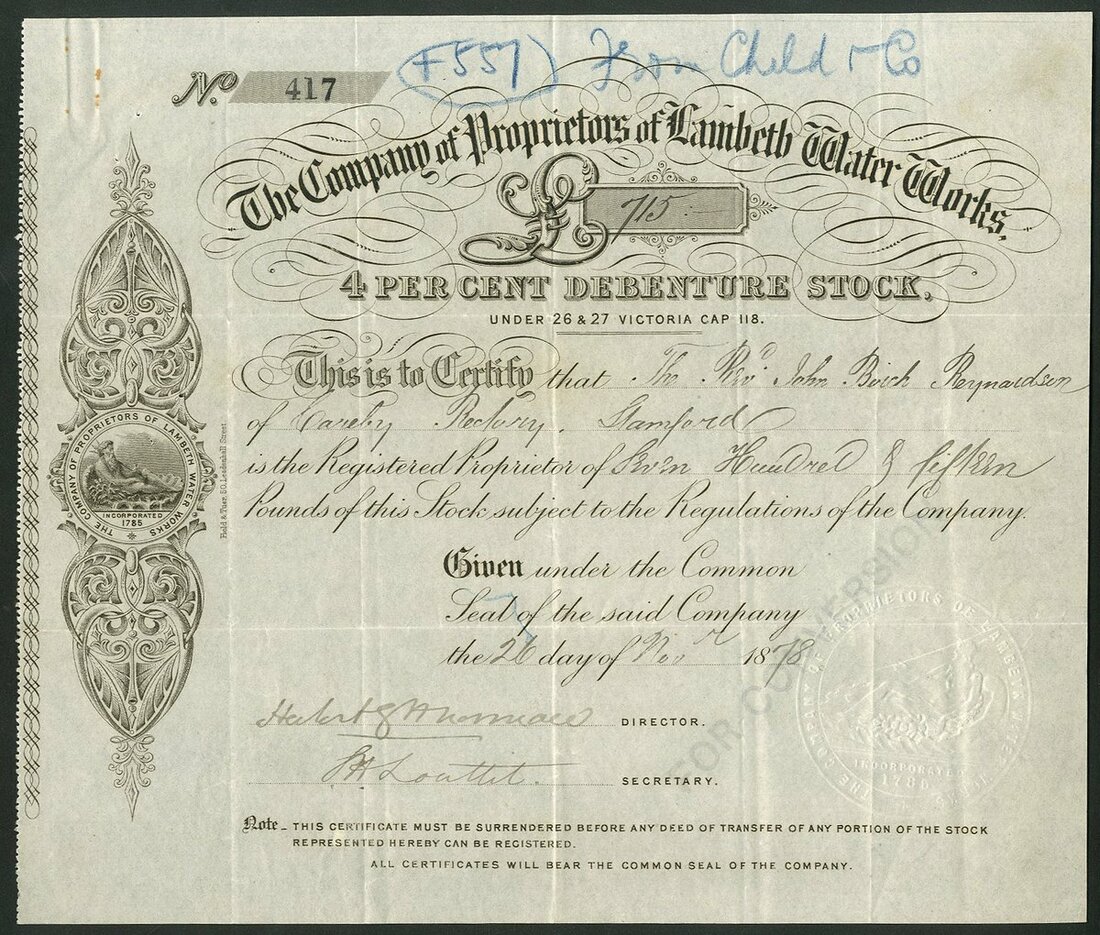 No. 417
F557) From Child & Co
The Company of Proprietors of Lambeth Water Works.
£ 715:—
4 PER CENT DEBENTURE STOCK,
UNDER 26 & 27 VICTORIA CAP 118.
This is to Certify that The Revd John Birch Reynardson
of Careby Rectory, Stamford
is the Registered Proprietor of Seven Hundred & fifteen
Pounds of this Stock subject to the Regulations of the Company.
Given under the Common
Seal of the said Company
the 26 day of Novr 1878
DIRECTOR.
SECRETARY.
Note_ THIS CERTIFICATE MUST BE SURRENDERED BEFORE ANY DEED OF TRANSFER OF ANY PORTION OF THE STOCK
REPRESENTED HEREBY CAN BE REGISTERED.
ALL CERTIFICATES WILL BEAR THE COMMON SEAL OF THE COMPANY.
THE COMPANY OF PROPRIETORS OF LAMBETH WATER WORKS
INCORPORATED
1785
Field & Tuer, 50, Leadenhall Street.
FOR CONVERSION
THE COMPANY OF PROPRIETORS OF LAMBETH WATER WORKS
INCORPORATED
1785